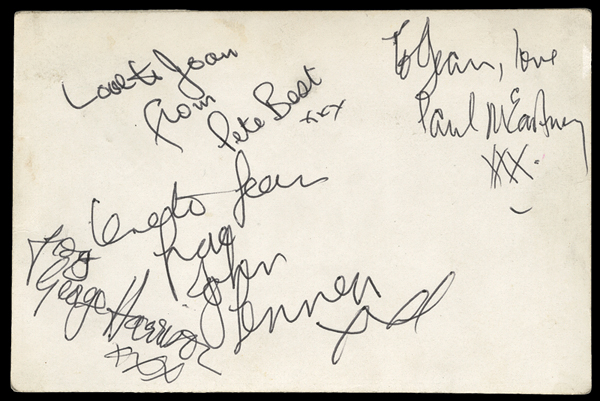 Love to Joan
from
Pete Best
xxx
To Jean, love
Paul McCartney
XXX.
Love to Jean
from
John
Lennon
from
George Harrison
xxx